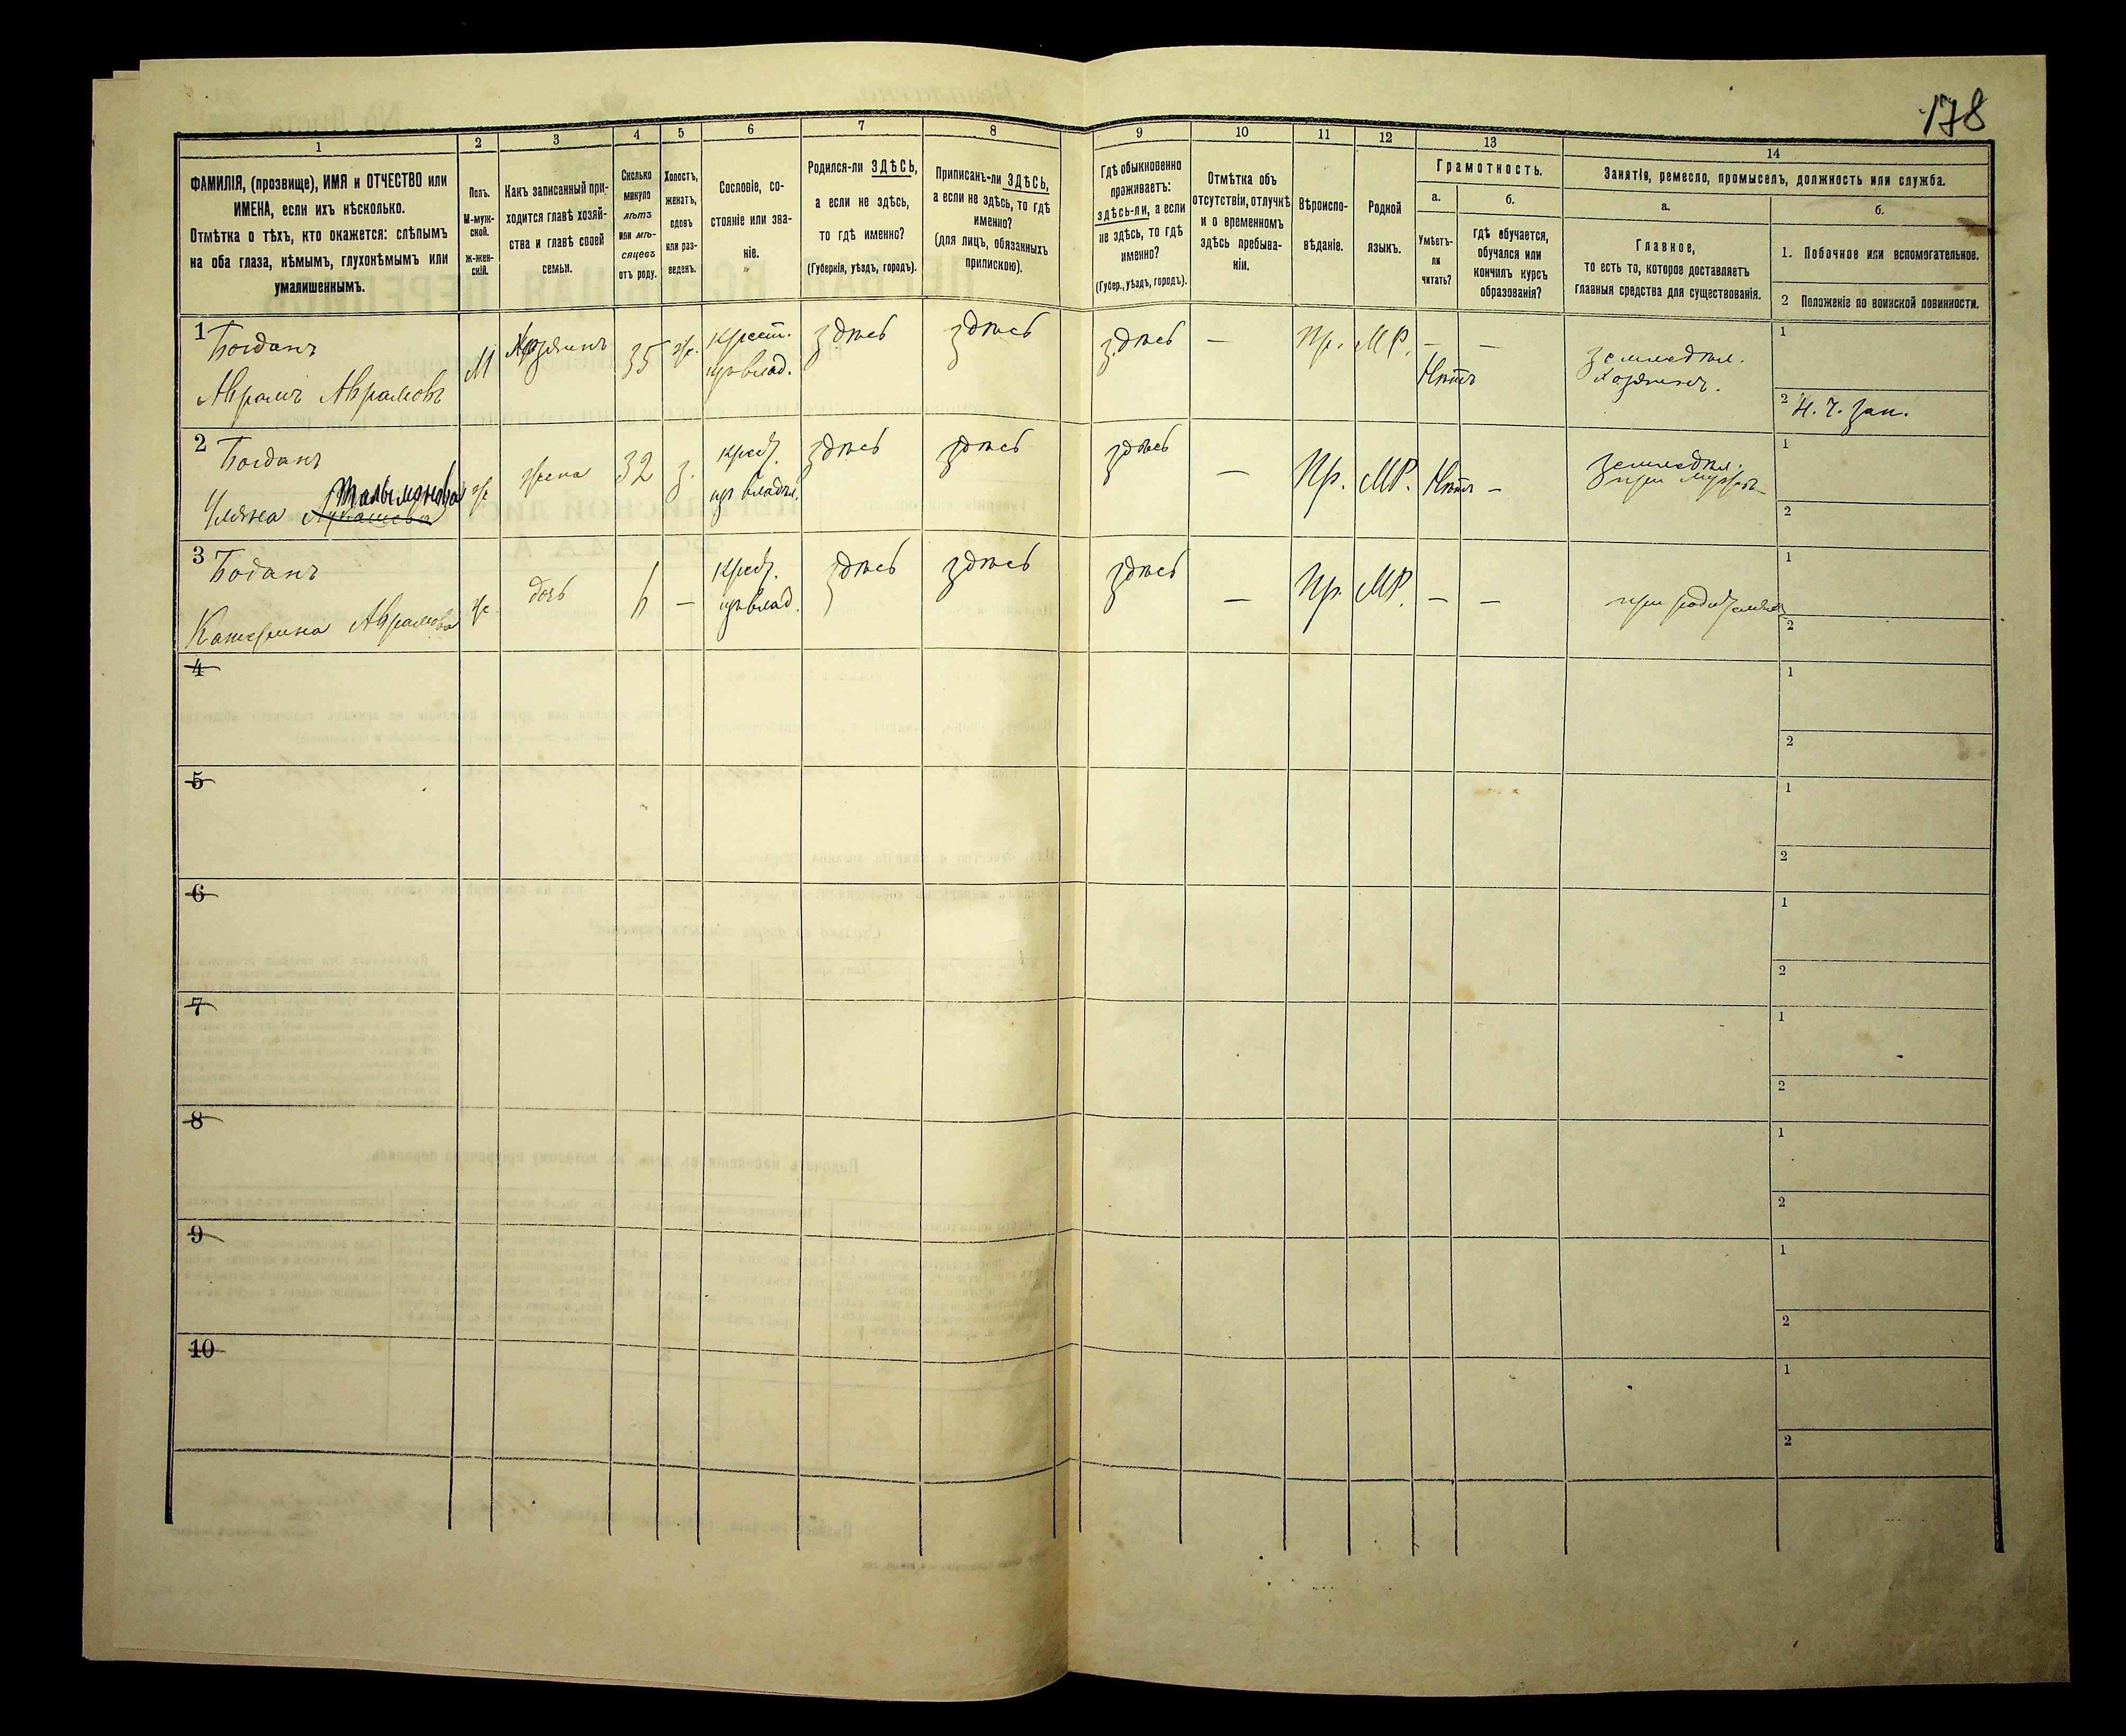 178
1
2
3
4
5
6
7
8
9
10
11
12
13
14
ФАМИЛІЯ, (прозвище), ИМЯ и ОТЧЕСТВО или
ИМЕНА, если ихъ нѣсколько.
Отмѣтка о тѣхъ, кто окажется: слѣпымъ
на оба глаза, нѣмымъ, глухонѣмымъ или
умалишеннымъ.
Полъ.
М-муж-
ской.
Ж-жен-
скій.
Какъ записанный при-
ходится главѣ хозяй-
ства и главѣ своей
семьи.
Сколько
минуло
лѣтъ
или мѣ-
сяцевъ
отъ роду.
Холостъ,
женатъ,
вдовъ
или раз-
веденъ.
Сословіе, со-
стояніе или зва-
ніе.
Родился-ли ЗДѢСЬ,
а если не здѣсь,
то гдѣ именно?
(Губернія, уѣздъ, городъ).
Приписанъ-ли ЗДѢСЬ,
а если не здѣсь, то гдѣ
именно?
(для лицъ, обязанныхъ
припискою).
Гдѣ обыкновенно
проживаетъ:
здѣсь-ли, а если
не здѣсь, то гдѣ
именно?
(Губер., уѣздъ, городъ).
Отмѣтка объ
отсутствіи, отлучкѣ
и о временномъ
здѣсь пребыва-
ніи.
Вѣроиспо-
вѣданіе.
Родной
языкъ.
Грамотность.
а.
Умѣетъ-
ли
читать?
б.
гдѣ обучается,
обучался или
кончилъ курсъ
образованія?
Занятія, ремесло, промыселъ, должность или служба.
а.
Главное,
то есть то, которое доставляетъ
главныя средства для существованія.
б.
1. Побочное или вспомогательное.
2 Положеніе по воинской повинности.
1
Богданъ
Аврамъ Аврамовъ
М
Хозяинъ
35
ж.
крест.
изъ влад.
здѣсь
здѣсь
здѣсь
—
Пр.
МР.
—
Нѣтъ
—
земледѣл.
Хозяинъ.
1
2 Н. Ч. Зап.
2
Богданъ
Уляна Лукашева Талымонова
ж
жена
32
з.
крест.
изъ владѣл.
здѣсь
здѣсь
здѣсь
—
Пр.
МР.
Нѣтъ
—
земледѣл.
при мужѣ
1
2
3
Боданъ
Катерина Аврамова
ж.
дочь
—
крест.
изъ влад.
здѣсь
здѣсь
здѣсь
—
Пр.
МР.
—
—
при родителяхъ
1
2
4
1
2
5
1
2
6
1
2
7
1
2
8
1
2
9
1
2
10
1
2